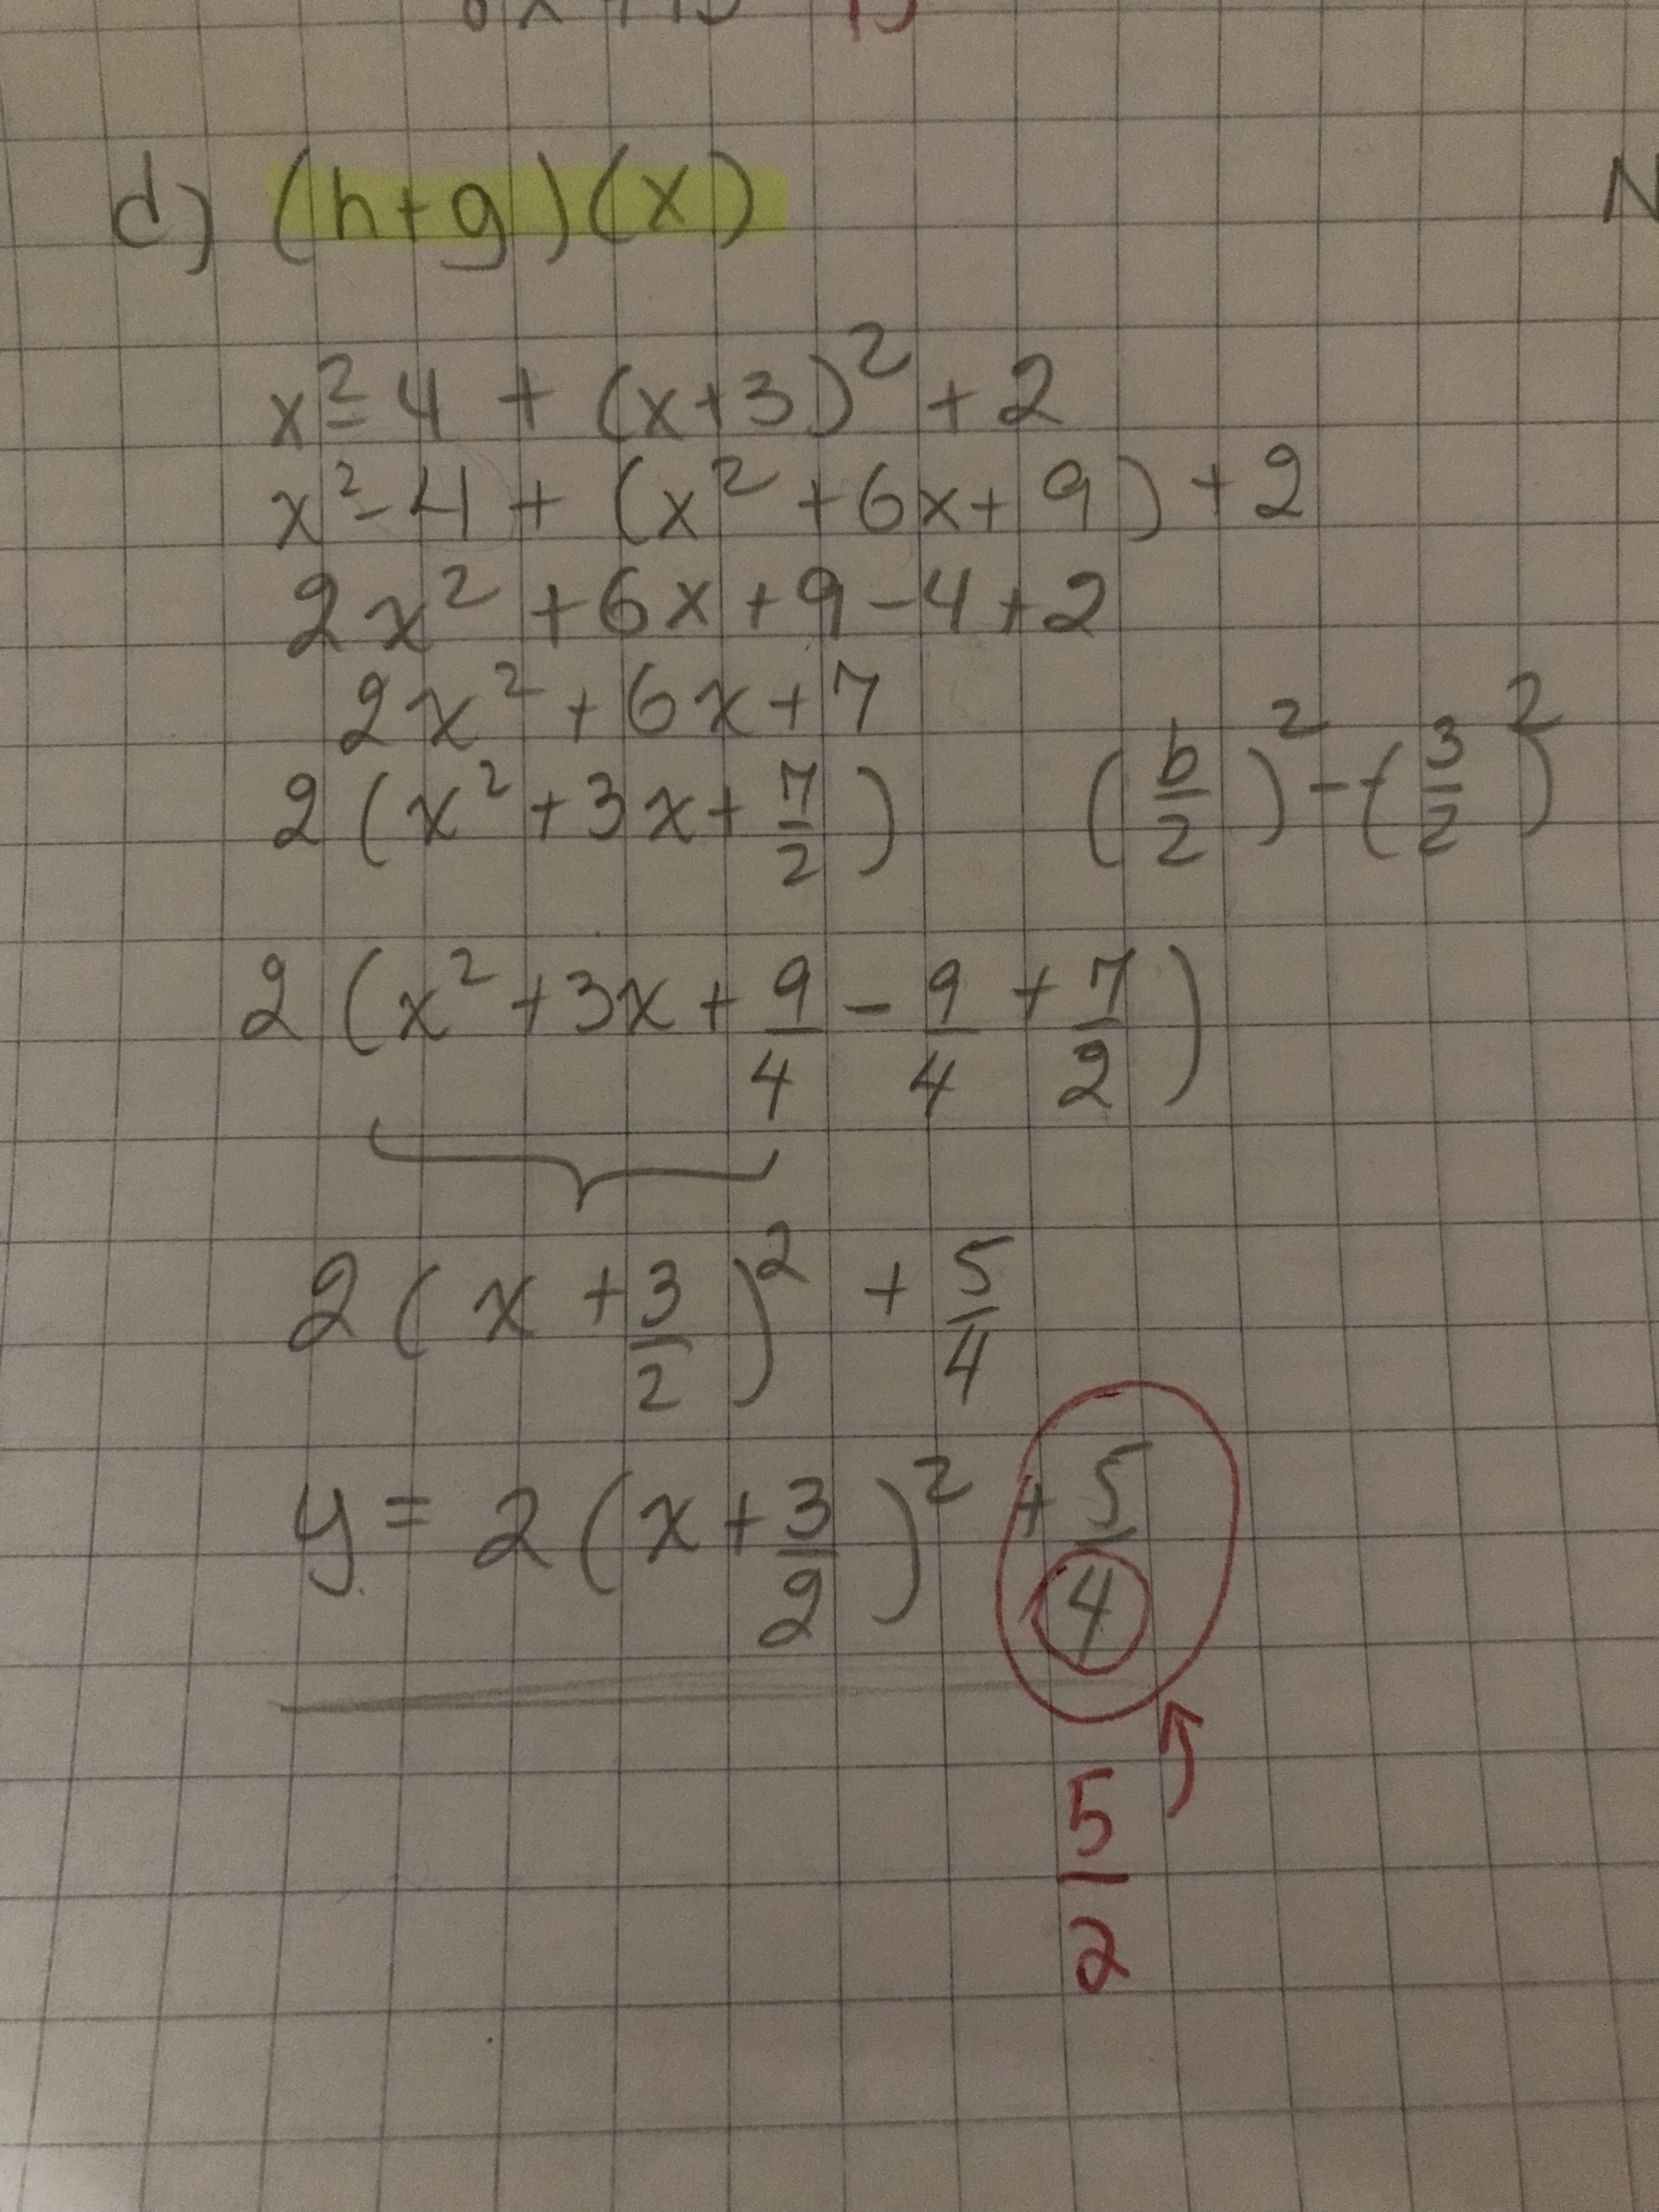 d) (h+g)(x)
x²-4 + (x+3)² + 2
x²-4 + (x²+6x+9) + 2
2x² + 6x + 9 - 4 + 2
2x² + 6x + 7
2(x² + 3x + 7/2) (b/2)² - (3/2)²
2(x² + 3x + 9/4 - 9/4 + 7/2)
2(x + 3/2)² + 5/4
y = 2(x + 3/2)² + 5/4
5/2